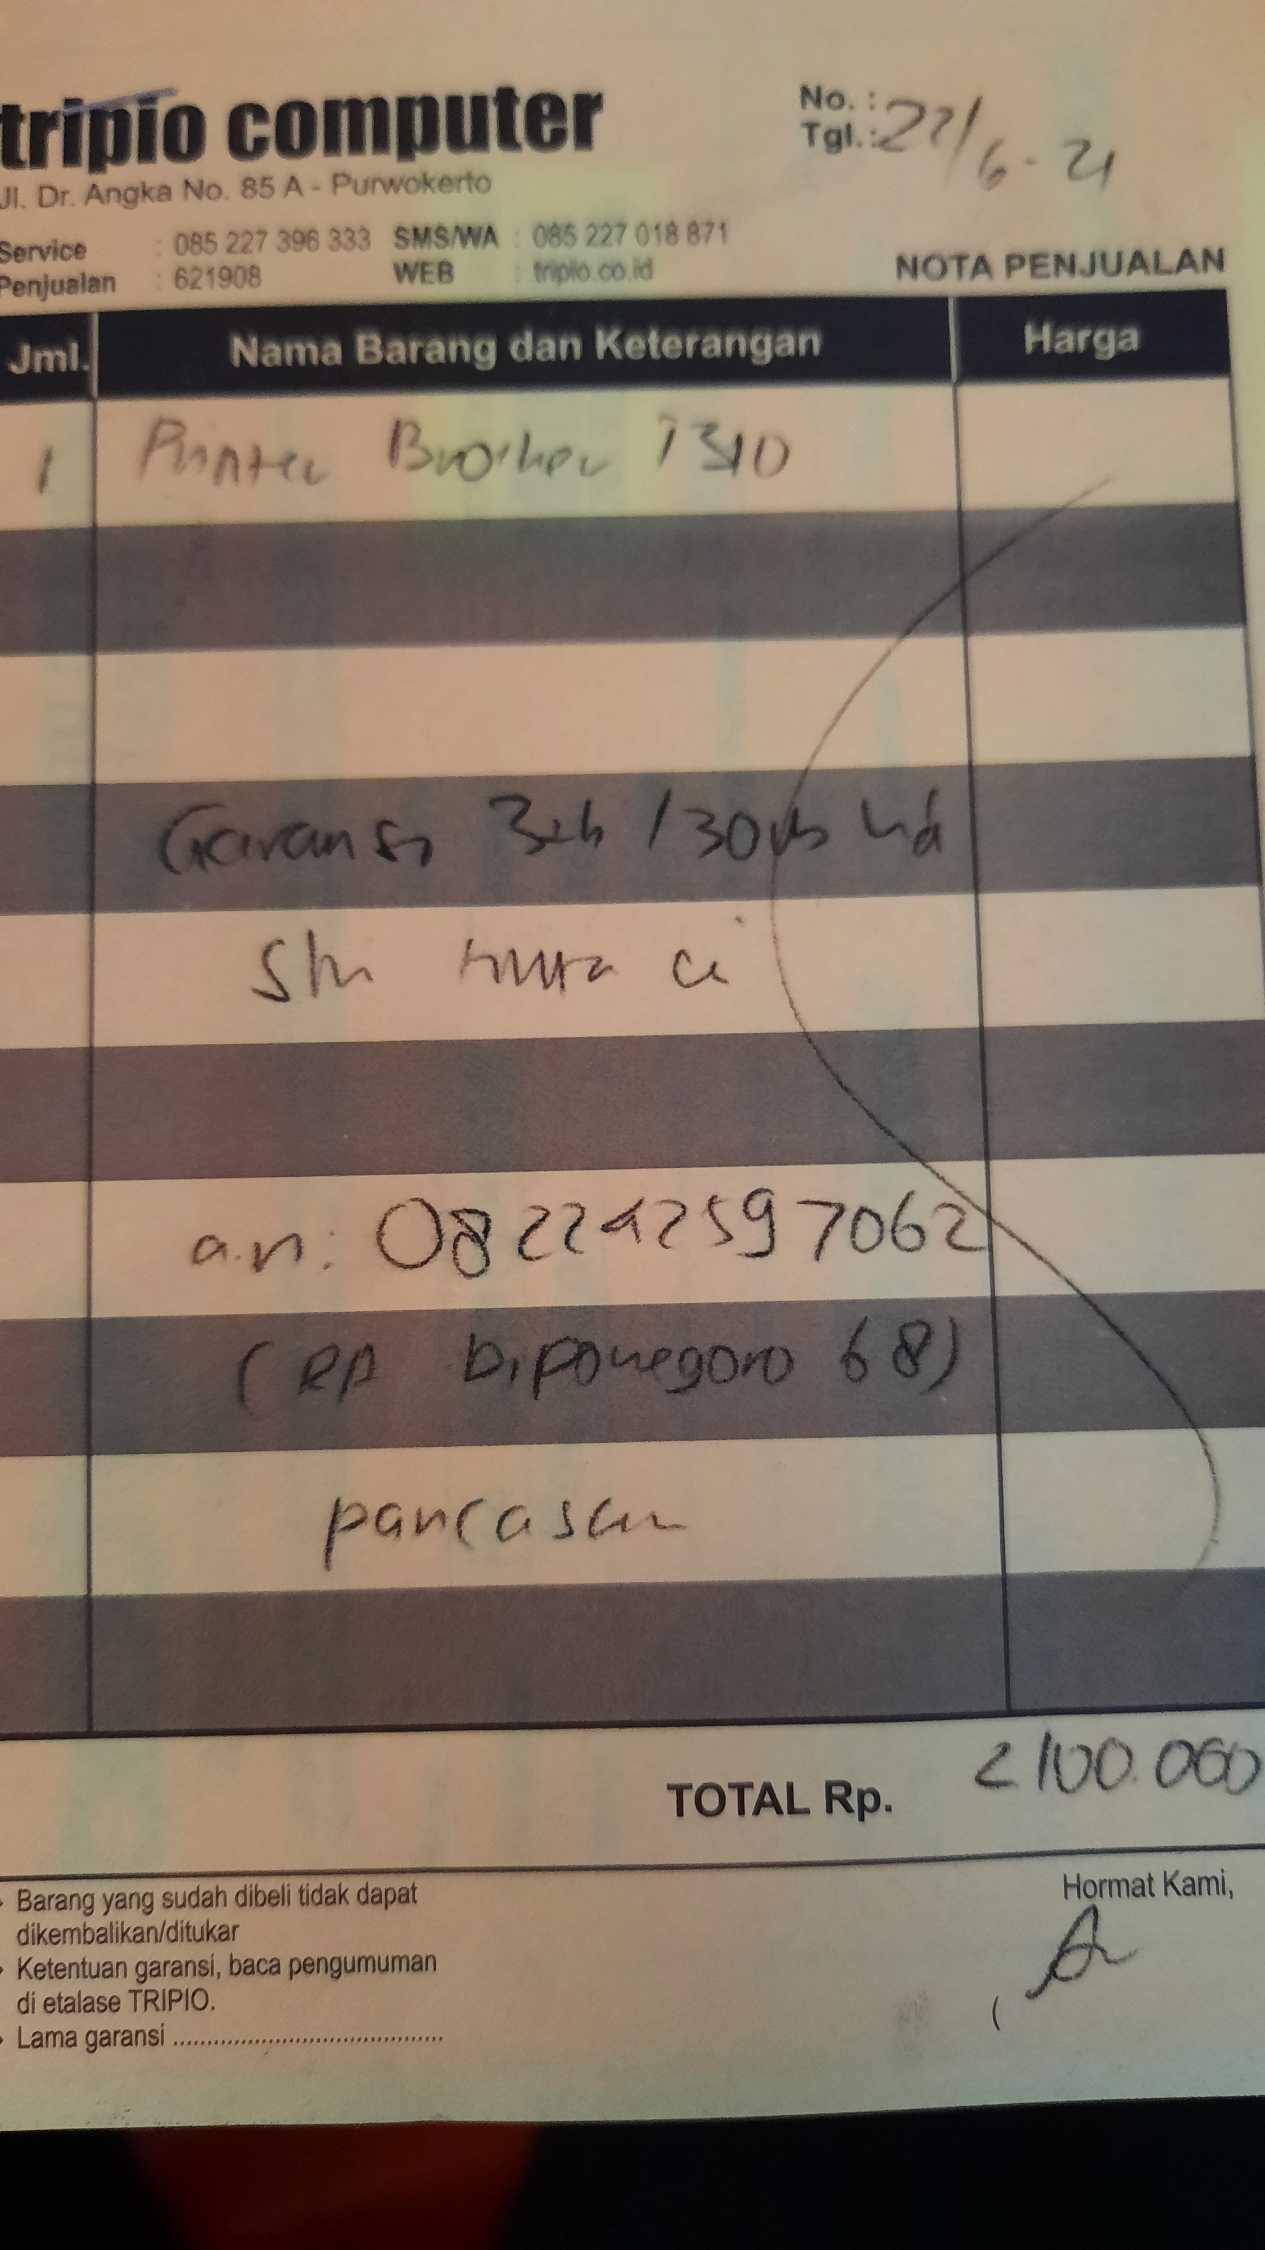 tripio computer
Jl. Dr. Angka No. 85 A - Purwokerto
No. :
Tgl.: 22/6-21
Service : 085 227 396 333 SMS/WA : 085 227 018 871
Penjualan : 621908 WEB : tripio.co.id
NOTA PENJUALAN
Jml. Nama Barang dan Keterangan Harga
1 Printer Brother T310
Garansi 3th / 30rb
a.n: 082242597062
(RA Diponegoro 68)
pancasan
TOTAL Rp. 2100.000
- Barang yang sudah dibeli tidak dapat
dikembalikan/ditukar
- Ketentuan garansi, baca pengumuman
di etalase TRIPIO.
- Lama garansi ........................................
Hormat Kami,